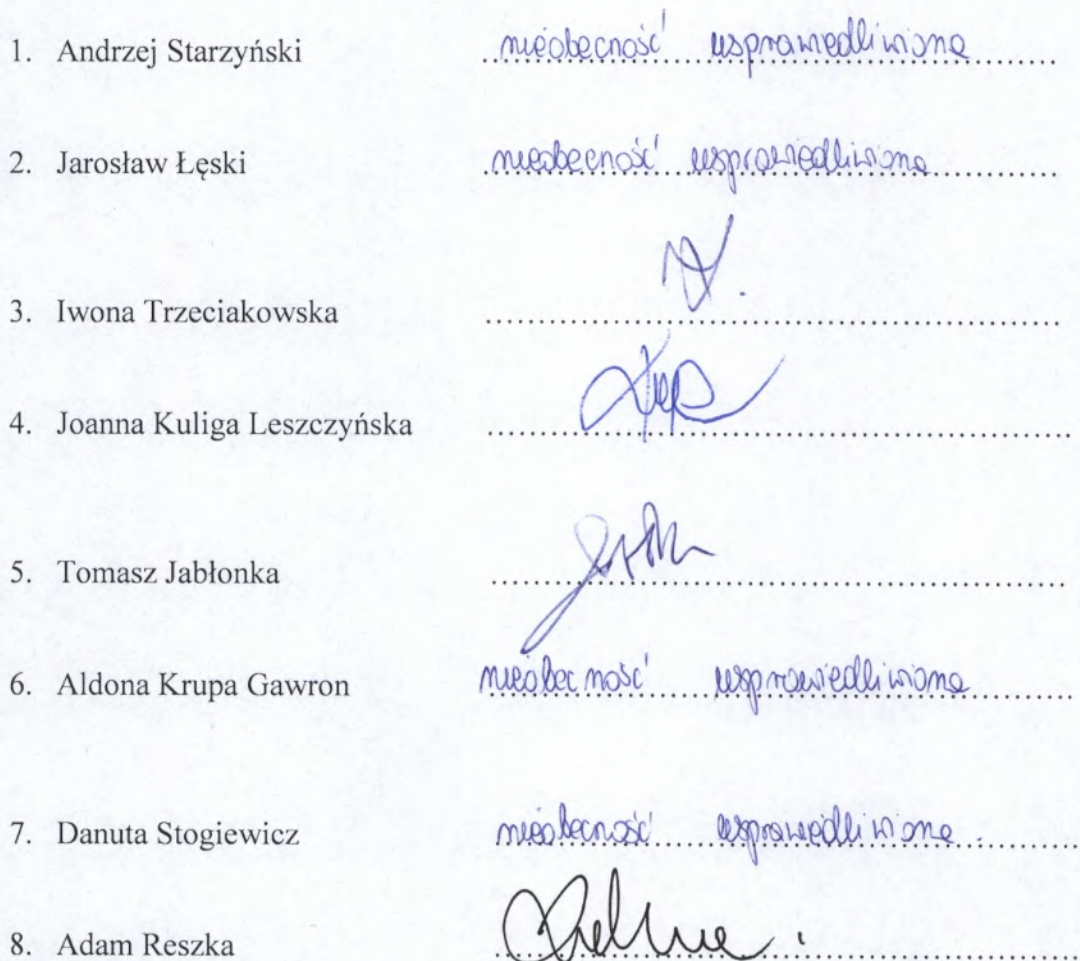 1. Andrzej Starzyński nieobecność usprawiedliwiona
2. Jarosław Łęski nieobecność usprawiedliwiona
3. Iwona Trzeciakowska
4. Joanna Kuliga Leszczyńska
5. Tomasz Jabłonka
6. Aldona Krupa Gawron nieobecność usprawiedliwiona
7. Danuta Stogiewicz nieobecność usprawiedliwiona.
8. Adam Reszka